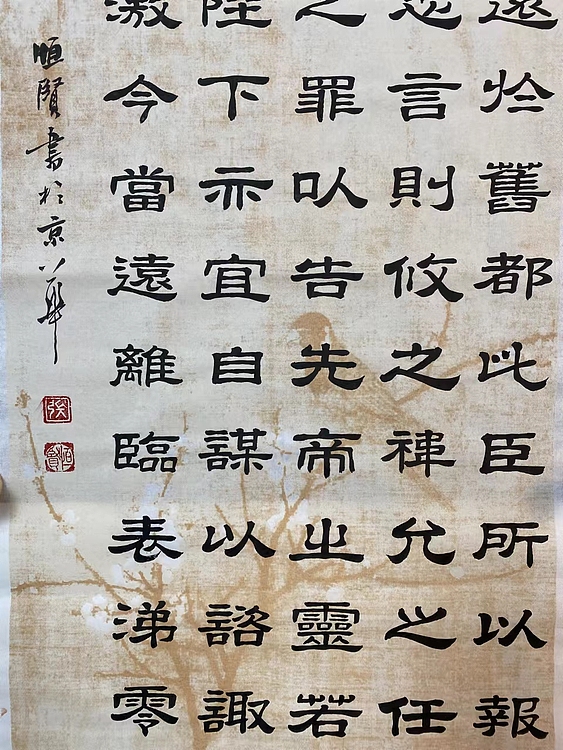 還於舊都此臣所以報
忠言則攸之禕允之任
之罪以告先帝之靈若
陛下亦宜自謀以諮諏
激今當遠離臨表涕零
恒賢書於京華
張
恒賢